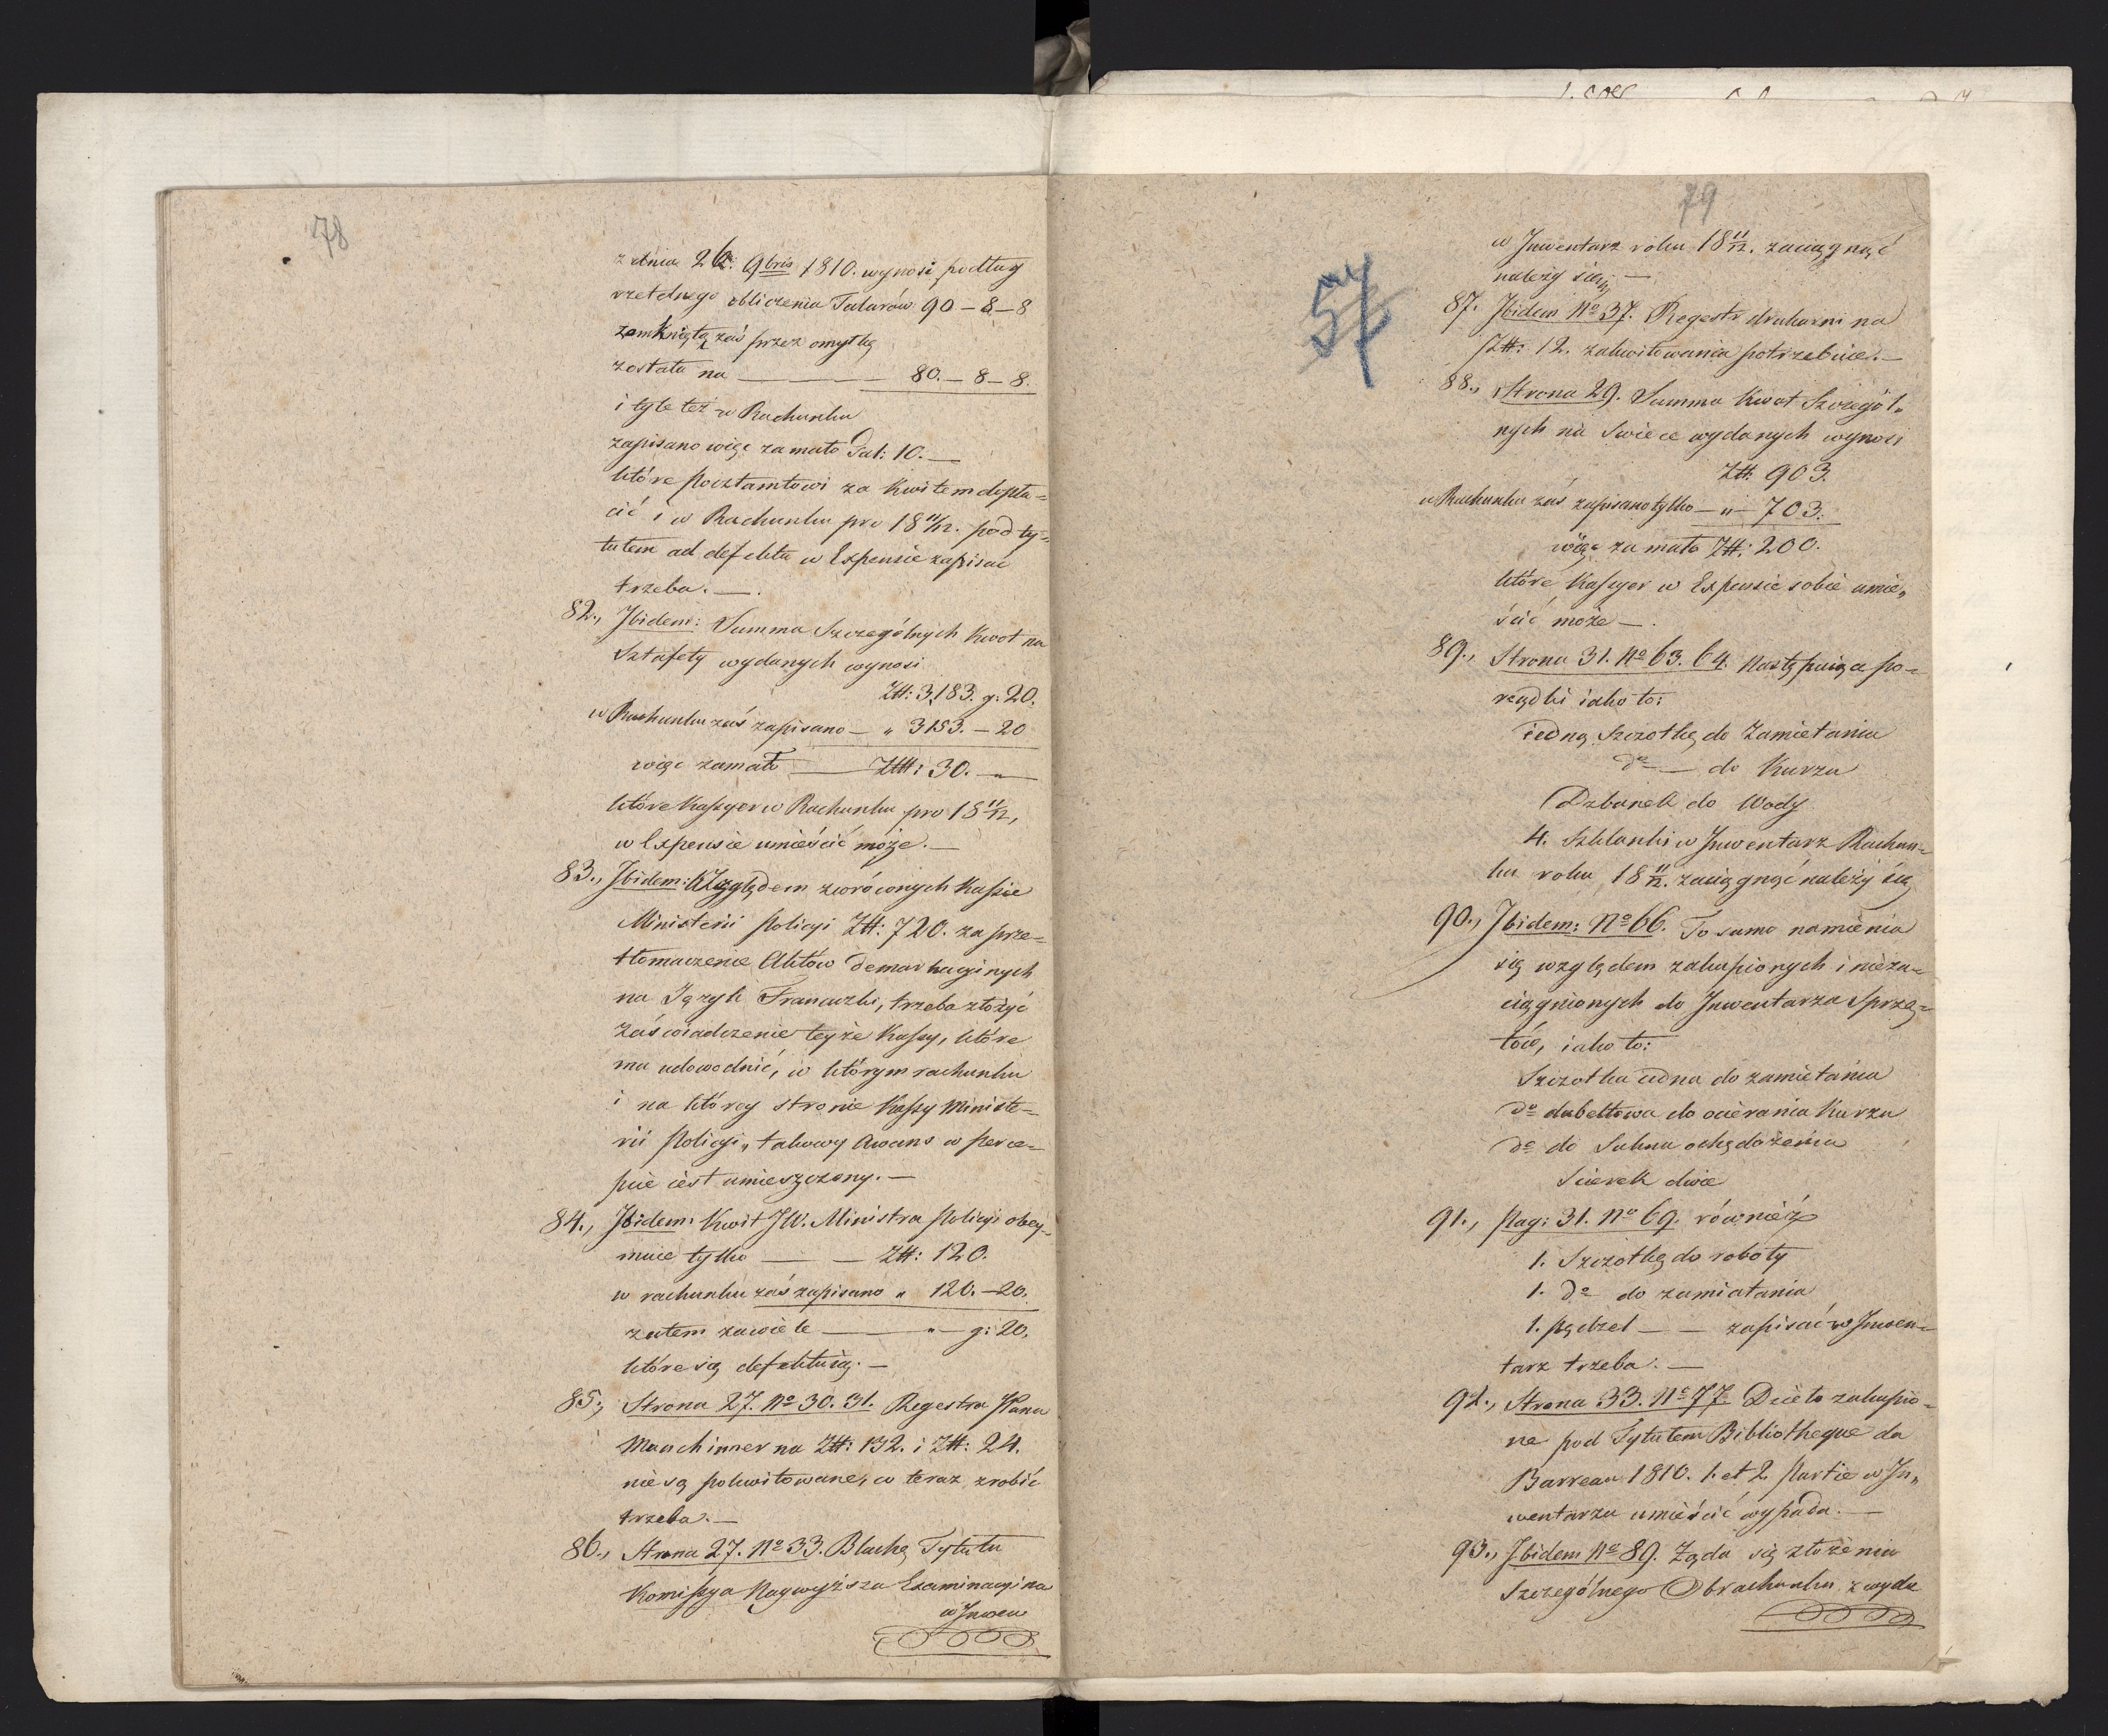 78
z dnia 26. 9bris 1810. wynosi podług
rzetelnego obliczenia Talarów 90 – 8 – 8
zamkniętą zaś przez omyłkę
została na ——— 80. – 8 – 8.
i tyle też w Rachunku
zapisano więc zamało Tal: 10. —
które Pocztamtowi za Kwitem dopła=
cić i w Rachunku pro 18 11/12. pod ty=
tułem ad defekta w Expensie zapisać
trzeba. —.
82., Ibidem: Summa Szczególnych Kwot na
Sztafety wydanych wynosi
Zł: 3183. g: 20.
w Rachunku zaś zapisano — „ 3153. – 20
więc zamało —— Złł: 30. — „
które Kassyer w Rachunku pro 18 11/12,
w Expensie umieścić może. —
83., Ibidem: Względem zwróconych Kassie
Ministerii Policyi Zł: 720. za prze=
tłomaczenie Aktów demarkacyinych
na Język Francuzki, trzeba złożyć
zaświadczenie teyże Kassy, które
ma udowodnić, w którym rachunku
i na którey stronie Kassy Ministe=
rii Policyi „ takowy Awans w perce=
pcie iest umieszczony. —
84., Ibidem: Kwit JW. Ministra Policyi obey=
muie tylko —— — Zł: 120.
w rachunku zaś zapisano „ 120. – 20.
zatem zawiele ——— „ — g: 20,
które się defektuią. —
85., Strona 27. No 30. 31. Regestra Pana
Maachimer na Zł: 132. i Zł: 24.
nie są pokwitowane, co teraz zrobić
trzeba. —
86., Strona 27. No 33. Blachę Tytułu
Komissya Naywyższa Examinacyina
w Inwen
79
57
w Inwentarz roku 18 11/12. zaciągnąć
należy się. —
87. Ibidem No 37. Regestr drukarni na
Zł: 12. zakwitowania potrzebuie. —
88., Strona 29. Summa Kwot Szczegól„
nych na Swiece wydanych wynosi
Zł: 903.
w Rachunku zaś zapisano tylko — „ — 703.
więc zamało Zł: 200.
które Kassyer w Expensie sobie umie„
ścić może —.
89., Strona 31. No 63. 64. Następuiące po=
rządki iako to:
iedną Szczotkę do Zamietania
do — do Kurzu
Dzbanek do Wody
4. Szklanki w Inwentarz Rachun=
ku roku 18 11/12. zaciągnąć należy się
90., Ibidem: No 66. To samo namienia
się względem zakupionych i nieza=
ciągnionych do Inwentarza Sprzę=
tów, iako to:
Szczotka iedna do zamietania
do dubeltowa do ocierania Kurzu
do do Sukna ochędożenia
Scierek dwie
91., Pag: 31. No 69. również
1. Szczotkę do roboty
1. do do zamiatania
1. pędzel — — zapisać w Inwen=
tarz trzeba. —
92., Strona 33. No 77. Dzieło zakupio=
ne pod Tytułem Bibliotheque du
Barreau 1810. 1. et 2. Partie w In„
wentarzu umieścić wypada. —
93., Ibidem No 89. Żąda się złożenia
Szczególnego Obrachunku, z wyda